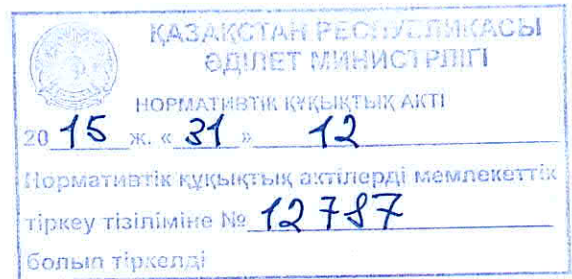 ҚАЗАҚСТАН РЕСПУБЛИКАСЫ
ӘДІЛЕТ МИНИСТРЛІГІ
НОРМАТИВТІК ҚҰҚЫҚТЫҚ АКТІ
20 15 ж. « 31 » 12
Нормативтік құқықтық актілерді мемлекеттік
тіркеу тізіліміне № 12787
болып тіркелді